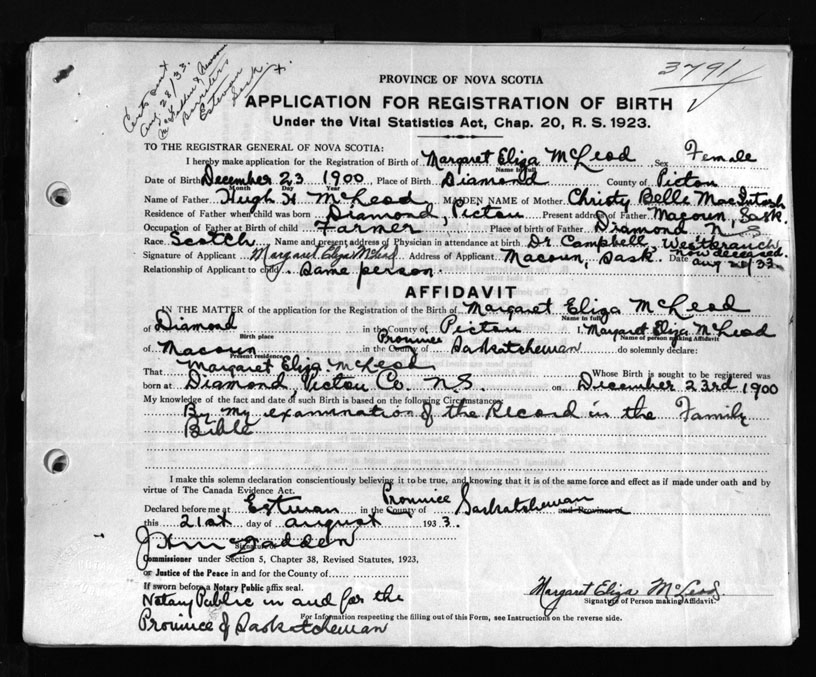 Cert. sent
Aug 28/33.
Barristers
Estevan
Sask.
3791
PROVINCE OF NOVA SCOTIA
APPLICATION FOR REGISTRATION OF BIRTH
Under the Vital Statistics Act, Chap. 20, R. S. 1923.
TO THE REGISTRAR GENERAL OF NOVA SCOTIA:
I hereby make application for the Registration of Birth of Margaret Eliza McLeod Sex Female
Name in full
Date of Birth December 23 1900 Place of Birth Diamond County of Pictou
Month Day Year
Name of Father Hugh H McLeod MAIDEN NAME of Mother Christy Belle MacIntosh
Residence of Father when child was born Diamond, Pictou Present address of Father Macoun, Sask.
Occupation of Father at Birth of child Farmer Place of birth of Father Diamond N S
Race Scotch Name and present address of Physician in attendance at birth Dr. Campbell, Westbranch
now deceased.
Signature of Applicant Margaret Eliza McLeod Address of Applicant Macoun, Sask. Date Aug 21/33
Relationship of Applicant to child Same person.
AFFIDAVIT
IN THE MATTER of the application for the Registration of the Birth of Margaret Eliza McLeod
Name in full
of Diamond in the County of Pictou I, Margaret Eliza McLeod
Birth place Name of person making Affidavit
Province
of Macoun in the County of Saskatchewan do solemnly declare:
Present residence
That Margaret Eliza McLeod Whose Birth is sought to be registered was
born at Diamond Pictou Co. N.S. on December 23rd 1900
My knowledge of the fact and date of such Birth is based on the following Circumstances:
By my examination of the Record in the Family
Bible
I make this solemn declaration conscientiously believing it to be true, and knowing that it is of the same force and effect as if made under oath and by
virtue of The Canada Evidence Act.
Province
Declared before me at Estevan in the County of Saskatchewan and Province of
this 21st day of August 1933.
Signature of
Commissioner under Section 5, Chapter 38, Revised Statutes, 1923,
or Justice of the Peace in and for the County of
If sworn before a Notary Public affix seal.
Notary Public in and for the
Province of Saskatchewan
Margaret Eliza McLeod
Signature of Person making Affidavit.
For Information respecting the filling out of this Form, see Instructions on the reverse side.